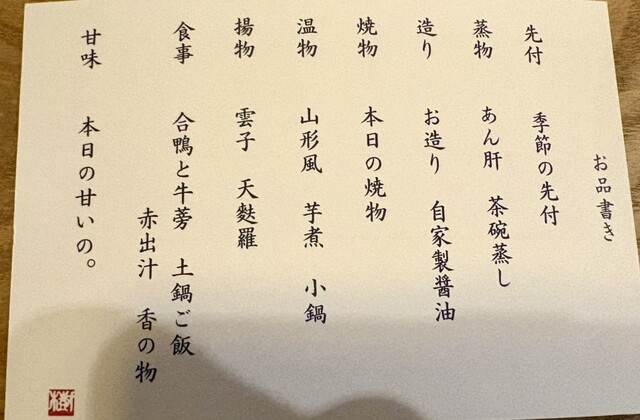 お品書き
先付 季節の先付
蒸物 あん肝 茶碗蒸し
造り お造り 自家製醤油
焼物 本日の焼物
温物 山形風 芋煮 小鍋
揚物 雲子 天麩羅
食事 合鴨と牛蒡 土鍋ご飯
赤出汁 香の物
甘味 本日の甘いの。